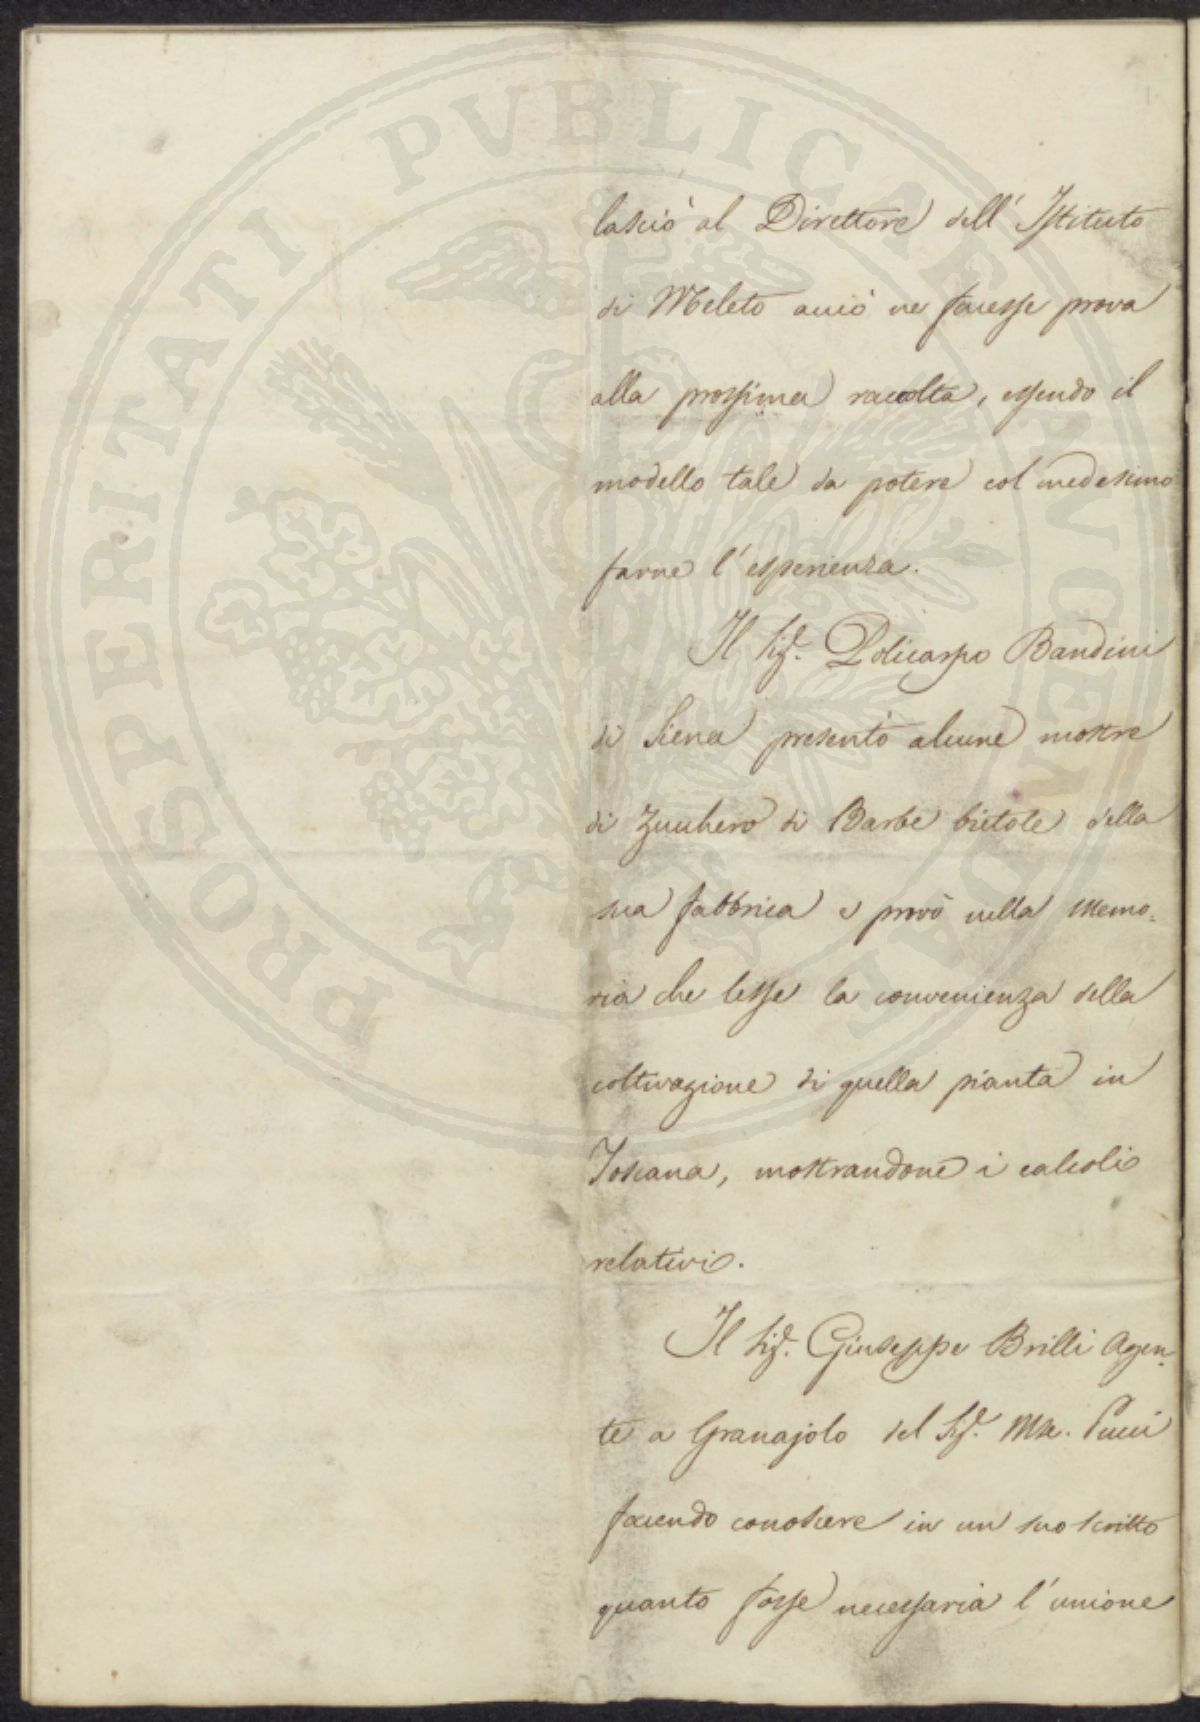 PROSPERITATI PVBLICAE AVGENDAE
lasciò al Direttore dell'Istituto
di Meleto acciò ne facesse prova
alla prossima raccolta, essendo il
modello tale da potere col medesimo
farne l'esperienza.
Il Sig.r Policarpo Bandini
di Siena presentò alcune mostre
di Zucchero di Barbe bietole della
sua fabbrica e provò nella Memo=
ria che lesse la convenienza della
coltivazione di quella pianta in
Toscana, mostrandone i calcoli
relativi.
Il Sig.r Giuseppe Brilli Agen=
te a Granajolo del Sig.r Mse. Pucci
facendo conoscere in un suo scritto
quanto fosse necessaria l'unione